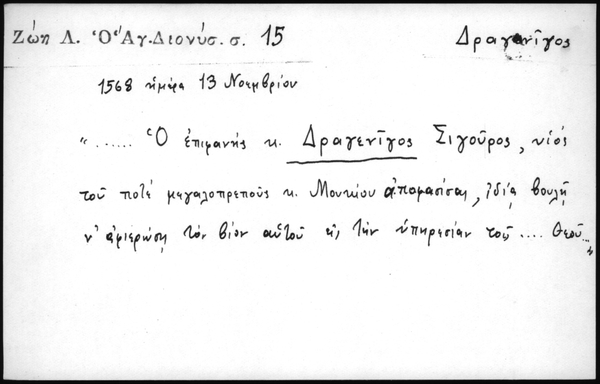 Ζώη Λ. Ὁ Ἅγ. Διονύσ. σ. 15 Δραγενῖγος
1568 ἡμέρα 13 Νοεμβρίου
"...... Ὁ ἐπιφανής κ. Δραγενῖγος Σιγοῦρος, υἱός
τοῦ ποτέ μεγαλοπρεποῦς κ. Μουκίου ἀποφασίσας, ἰδίᾳ βουλῇ
ν' ἀφιερώσῃ τόν βίον αὐτοῦ εἰς τήν ὑπηρεσίαν τοῦ .... Θεοῦ..."